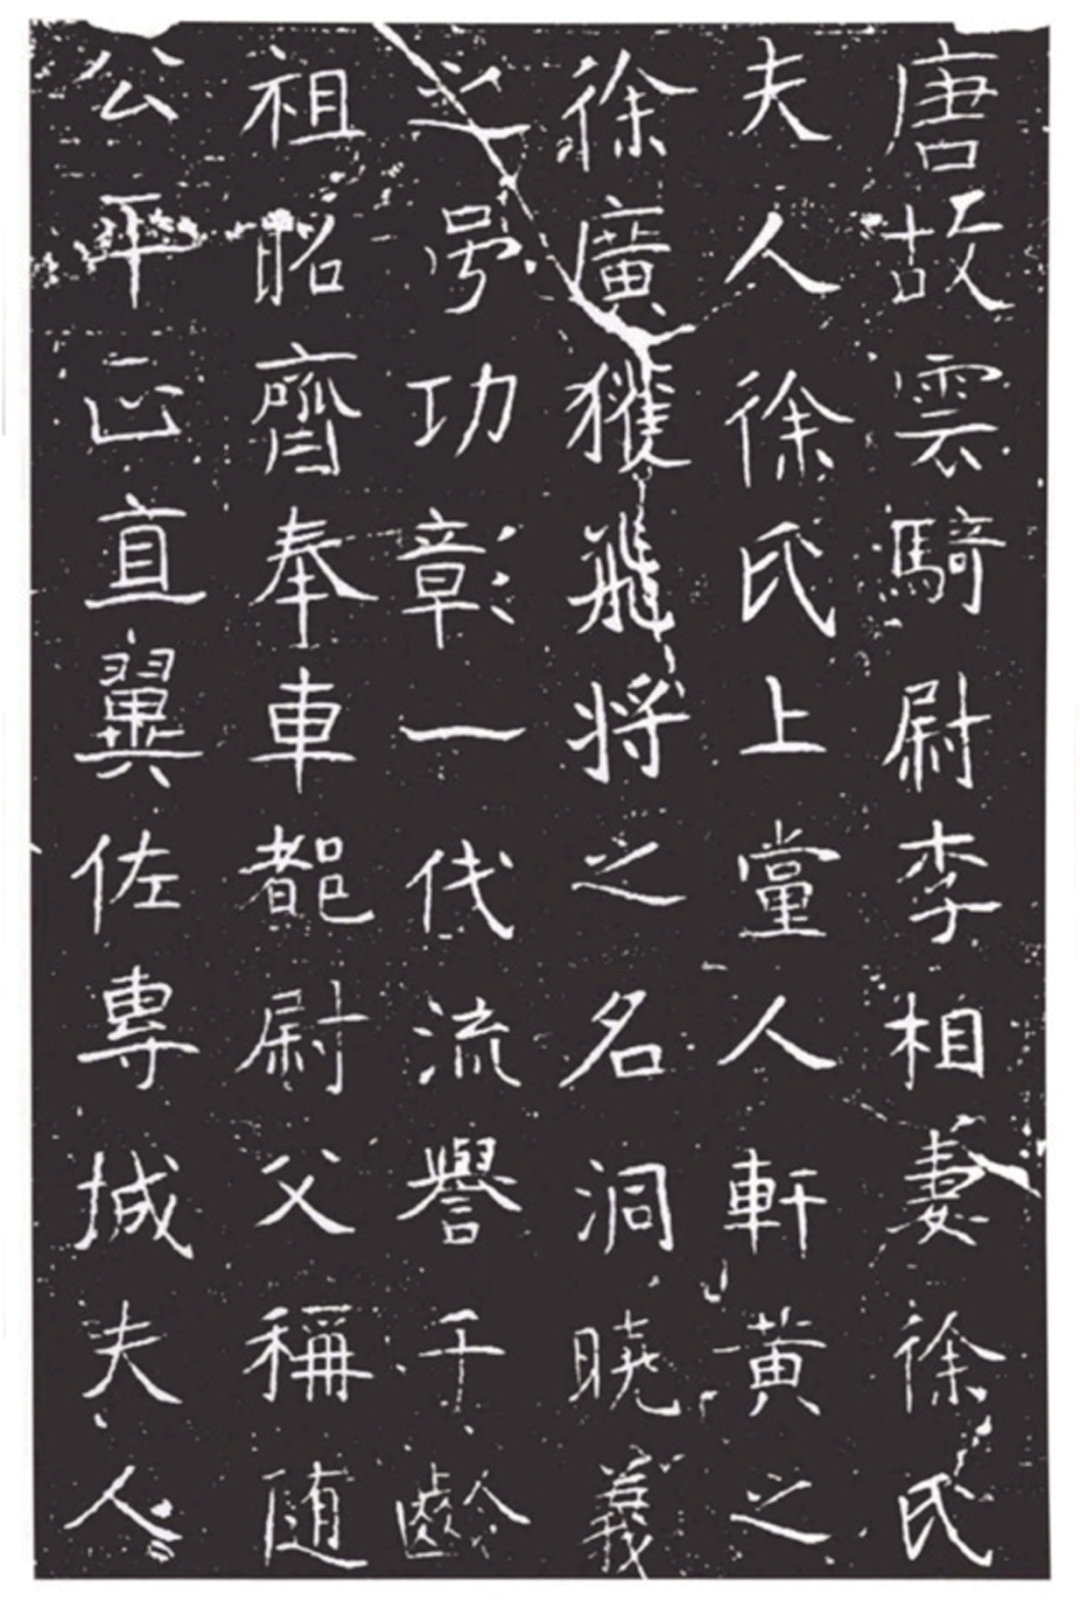 唐故雲騎尉李相妻徐氏
夫人徐氏上黨人軒黃之
徐廣獲飛將之名洞曉義
之号功彰一代流譽千齡
祖昭齊奉車都尉父稱随
公平正直翼佐專城夫人